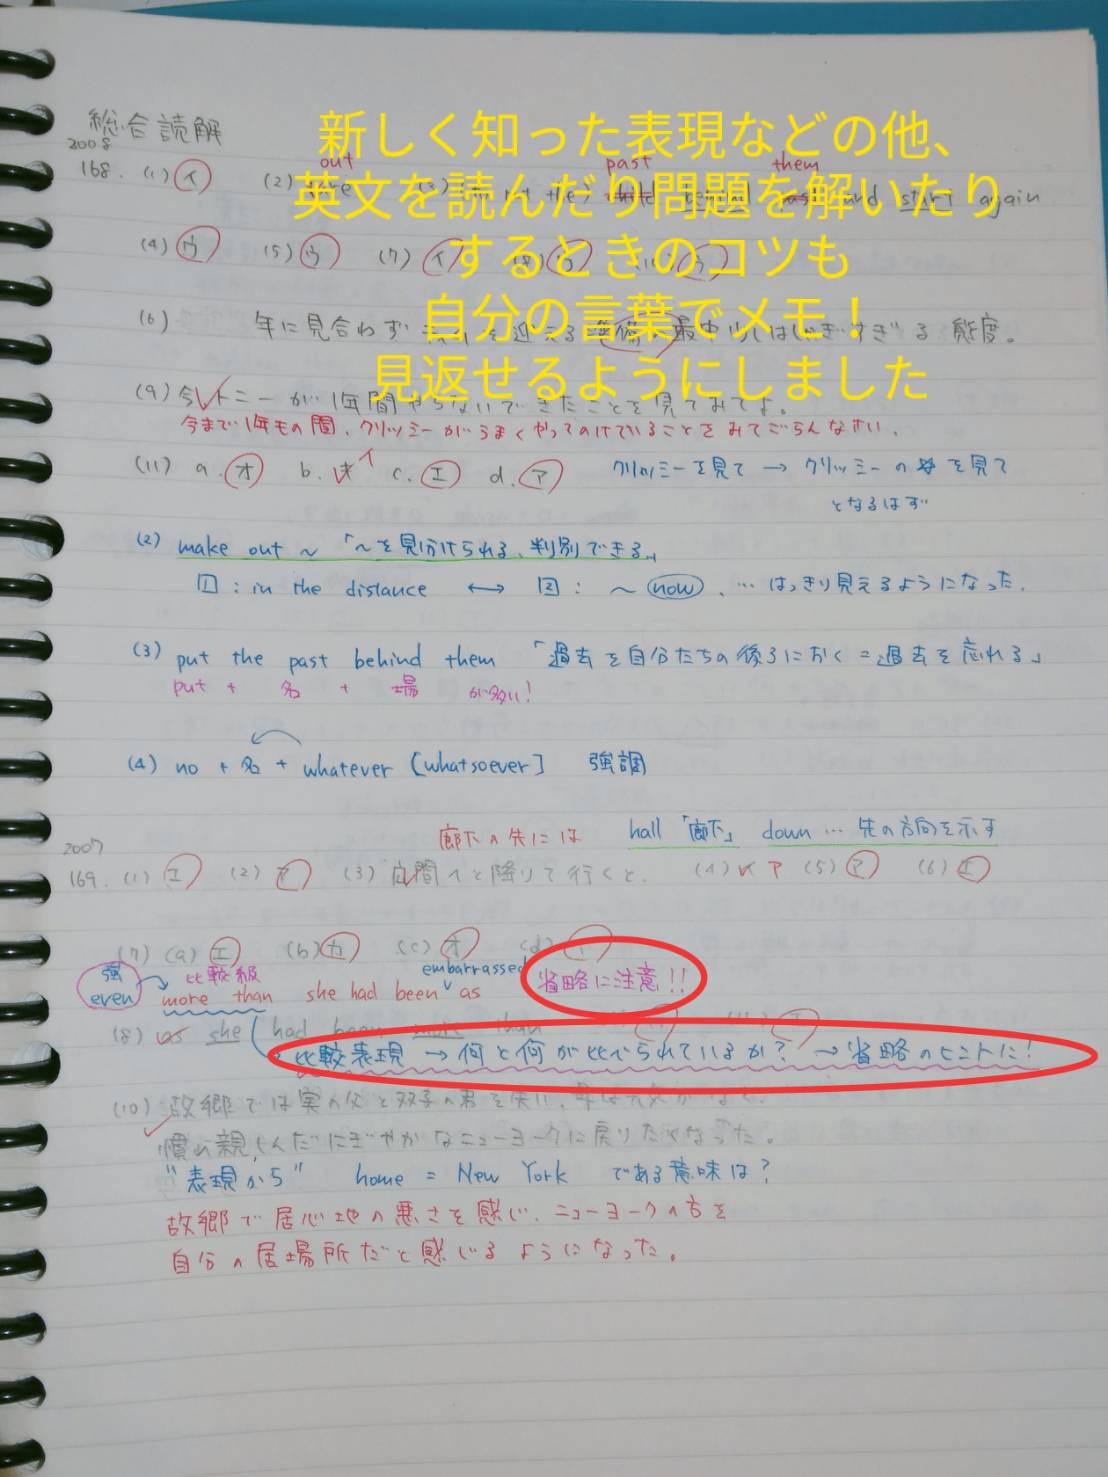 総合読解
新しく知った表現などの他、
英文を読んだり問題を解いたり
するときのコツも
自分の言葉でメモ！
見返せるようにしました
2008
168. (1) イ (2) out past them start again
(4) ウ (5) ウ (7) イ
(6) 年に見合わず を迎える 態度。
(9) 今、トニーが1年間やらないできたことを見てみてよ。
今まで1年もの間、クリッシーがうまくやってのけていることをみてごらんなさい。
(11) a. オ b. イ c. エ d. ア クリッシーを見て → クリッシーの を見て
となるはず
(2) make out ～ 「～を見分けられる、判別できる」
1 : in the distance ⟷ 2 : ～ now, … はっきり見えるようになった.
(3) put the past behind them 「過去を自分たちの後ろにおく = 過去を忘れる」
put + 名 + 場 が多い!
(4) no + 名 + whatever [whatsoever] 強調
2007 廊下の先には hall 「廊下」 down … 先の方向を示す
169. (1) エ (2) ア (3) 広間へと降りて行くと. (4) イ ア (5) ア (6) エ
(7) (a) エ (b) カ (c) オ (d)
強 比較級 embarrassed 省略に注意!!
even more than she had been as
(8) as she had been than
比較表現 → 何と何が比べられているか? → 省略のヒントに!
(10) 故郷では実の父と双子の
慣れ親しんだにぎやかなニューヨークに戻りたくなった。
"表現から" home = New York である意味は?
故郷で居心地の悪さを感じ、ニューヨークの方を
自分の居場所だと感じるようになった。